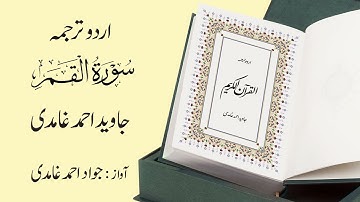 اردو ترجمہ
سُوْرَةُ الْقَمَرِ
جاوید احمد غامدی
آواز : جواد احمد غامدی
اردو ترجمہ
القرآن الکریم
جاوید احمد غامدی